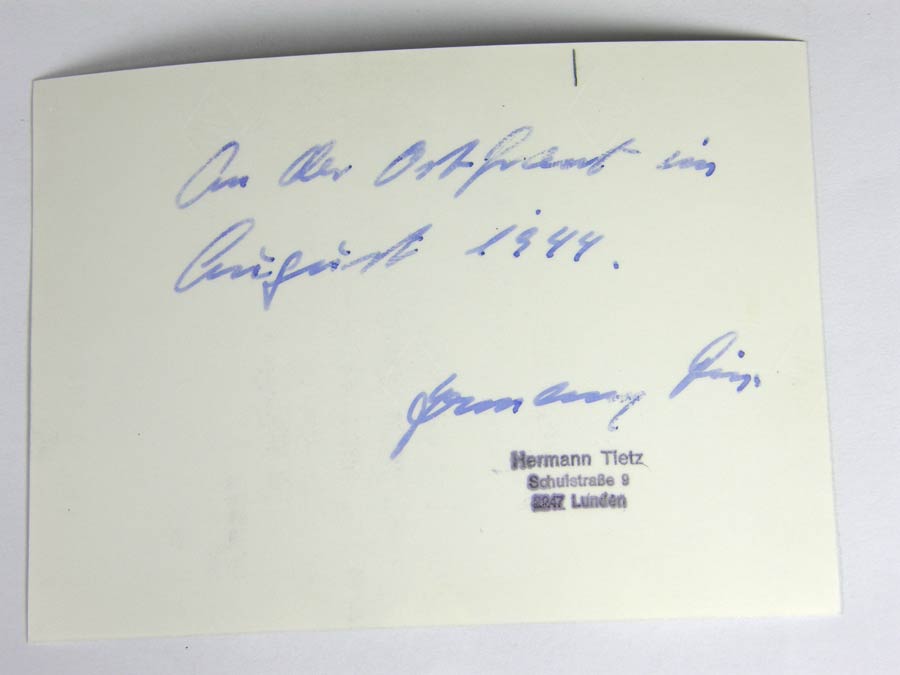 An der Ostfront im
August 1944.
Hermann
Hermann Tietz
Schulstraße 9
2247 Lunden